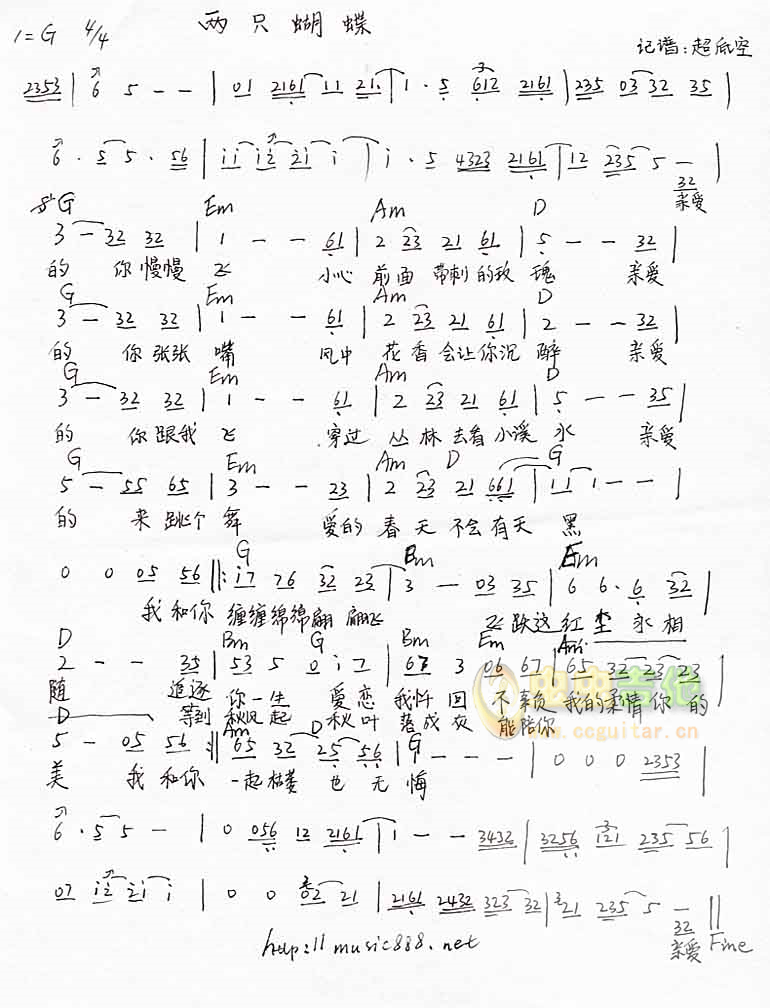 1=G 4/4 两只蝴蝶
记谱:超低空
2353 | 6 5 - - | 01 2161 11 21. | 1 · 5 612 2161 | 235 03 32 35 |
6 · 5 5 · 56 | i i i 2 2 i i | i · 5 4323 2161 | 12 235 5 - 32 |
亲爱
G Em Am D
3 - 32 32 | 1 - - 61 | 2 23 21 61 | 5 - - 32 |
的 你慢慢 飞 小心 前面 带刺的玫瑰 亲爱
G Em Am D
3 - 32 32 | 1 - - 61 | 2 23 21 61 | 2 - - 32 |
的 你张张 嘴 风中 花香会让你沉 醉 亲爱
G Em Am D
3 - 32 32 | 1 - - 61 | 2 23 21 61 | 5 - - 35 |
的 你跟我 飞 穿过 丛林去看小溪水 亲爱
G Em Am D G
5 - 55 65 | 3 - - 23 | 2 23 21 661 | 11 1 - - |
的 来跳个 舞 爱的 春天不会有天 黑
G Bm Em
0 0 05 56 ||: i7 76 32 23 | 3 - 03 35 | 6 6 · 6 32 |
我和你 缠缠绵绵翩 翩飞 飞跃这红尘 永相
D Bm G Bm Em Am
2 - - 35 | 53 5 0 i 7 | 67 3 06 67 | 65 32 23 23
随 追逐 你一生 爱恋 我忏回 不辜负 我的柔情你的
等到 秋风起 秋叶 落成灰 能陪你
D Am D G
5 - 05 56 :|| 65 32 25 56 | 1 - - - | 0 0 0 2353
美 我和你 一起枯萎 也无悔
6 · 5 5 - | 0 056 12 2161 | 1 - - 3432 | 3256 121 235 56 |
07 i 2 2 i i | 0 0 02 21 | 2161 2432 323 32 | 21 235 5 - 32 ||
亲爱 Fine
http://music888.net
虫虫吉他
www.ccguitar.cn